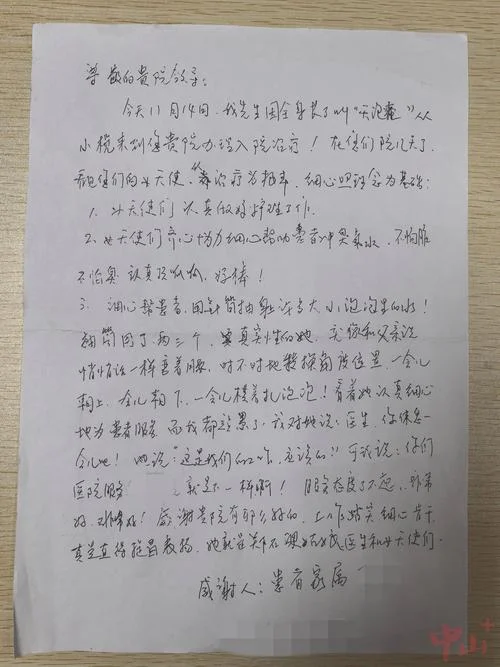 尊敬的贵院领导：
今天11月14日，我先生因全身长了叫“天泡疮”从
小榄来到您贵院办理入院治疗！在您们院几天了，
看您们的女天使，治疗为根本，细心照理念为基础：
1. 女天使们认真做好护理工作。
2. 女天使们齐心协力细心帮助患者冲臭氧水，不怕脏
不怕臭认真顶呱呱，好棒！
3. 细心帮患者，用针筒抽身许多大小泡泡里的水！
针筒用了两三个，真实性的她，像和父亲说
悄悄话一样弯着腰，时不时地换角度位置，一会儿
朝上，一会儿朝下，一会儿横着扎泡泡！看着她认真细心
地为患者服务，而我都说累了，我对她说：医生，你休息一
会儿吧！她说：“这是我们的工作，应该的！”可我说：你们
医院服务就是不一样啊！服务态度了不起，非常
好，非常好！感谢贵院有那么好的，工作踏实细心肯干，
真是值得提昌表扬，她就是医生和女天使们。
感谢人：患者家属
中山+